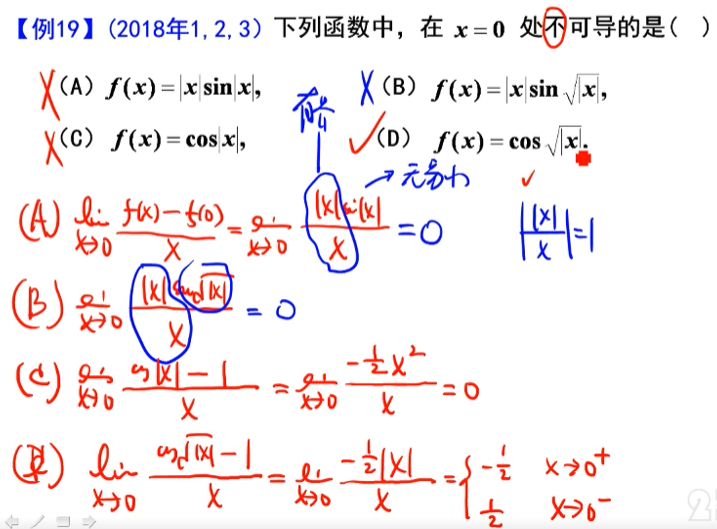 【例19】(2018年1,2,3) 下列函数中，在 x=0 处不可导的是( )
(A) f(x)=|x|sin|x|, (B) f(x)=|x|sin√|x|,
(C) f(x)=cos|x|, (D) f(x)=cos√|x|.
有界
无穷小
(A) lim x→0 f(x)-f(0)/x = lim x→0 |x|sin|x|/x = 0 ||x|/x|=1
(B) lim x→0 |x|sin√|x|/x = 0
(C) lim x→0 cos|x|-1/x = lim x→0 -½x²/x = 0
(D) lim x→0 cos√|x|-1/x = lim x→0 -½|x|/x = { -½ x→0⁺
½ x→0⁻